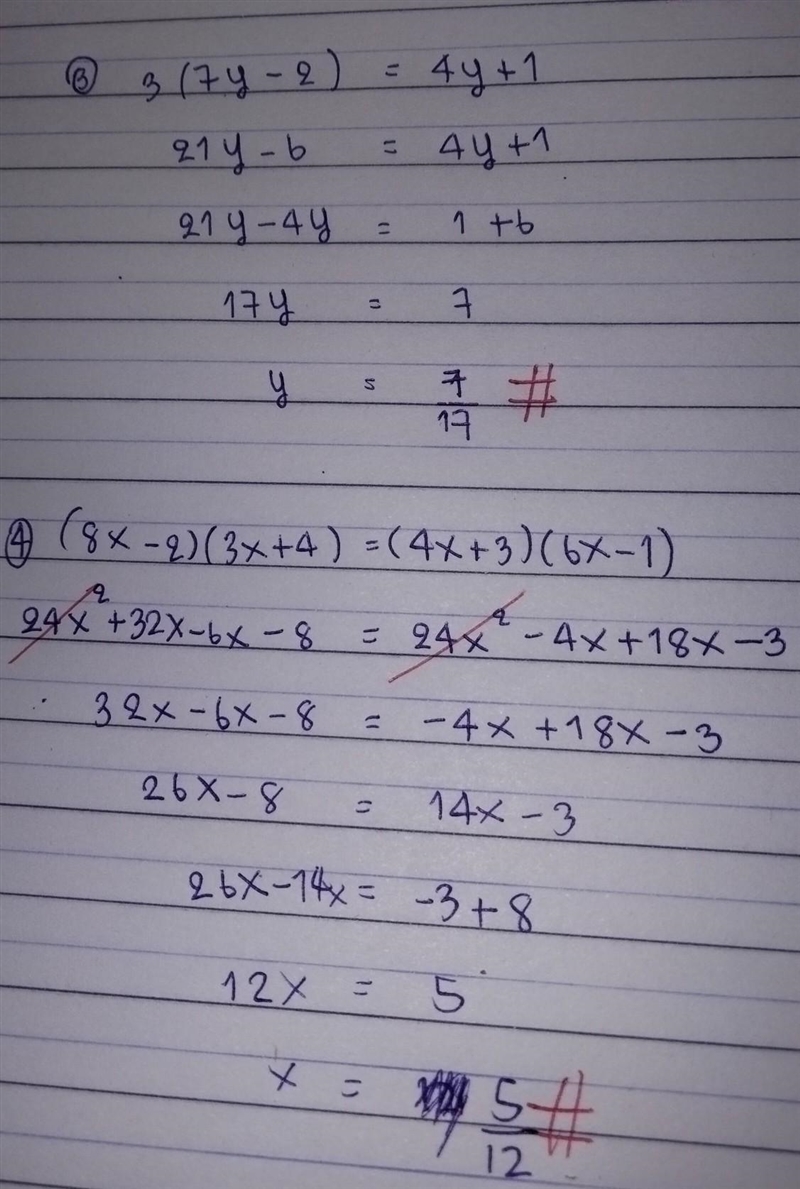 ③ 3(7y-2) = 4y+1
21y-6 = 4y+1
21y-4y = 1+6
17y = 7
y = 7/17 #
④ (8x-2)(3x+4) = (4x+3)(6x-1)
24x²+32x-6x-8 = 24x²-4x+18x-3
32x-6x-8 = -4x+18x-3
26x-8 = 14x-3
26x-14x = -3+8
12x = 5
x = 5/12 #